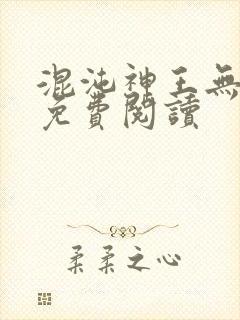 混沌神王無
免費閱讀
柔柔之心